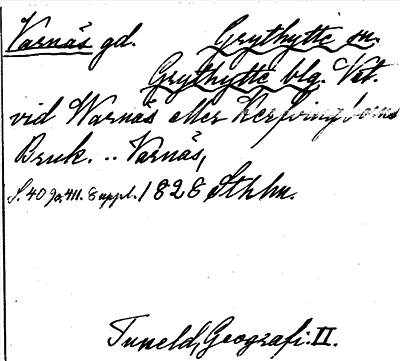 Varnås gd. Grythytte sn.
Grythytte blg. Vst.
vid Warnås eller Kerfvingborns
Bruk. .. Varnås,
S. 40 So. 411. Suppl. 1828 Sthlm.
Tuneld, Geografi. II.